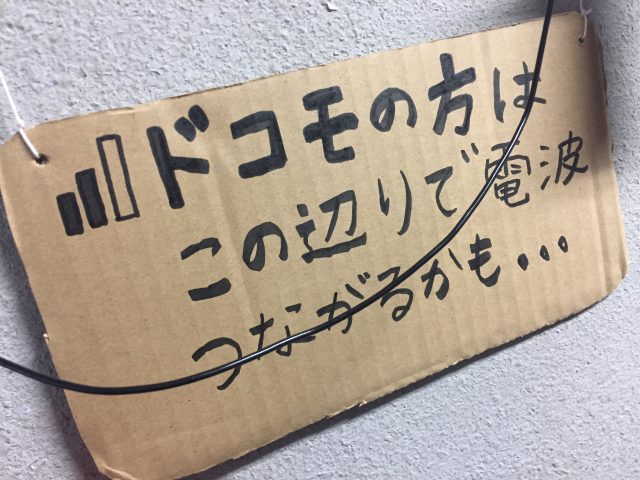 ドコモの方は
この辺りで電波
つながるかも...